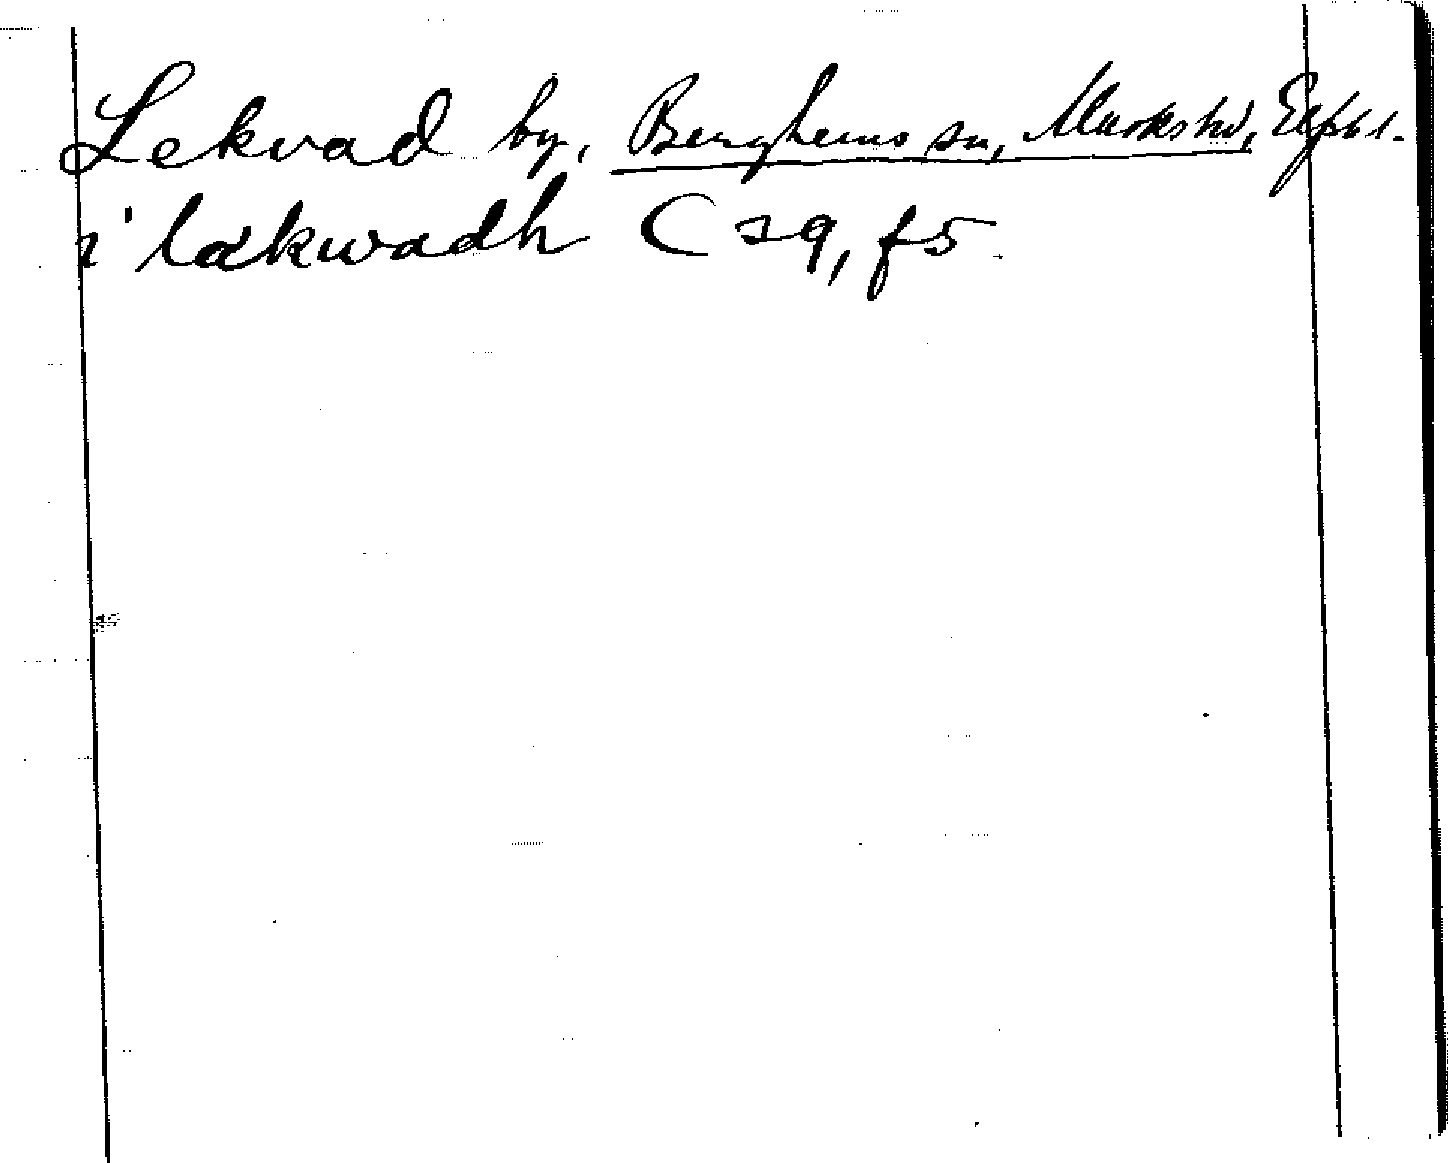 Lekvad by, Berghems sn, Marks hd, Elfsbl.
i lækwadh C 29, f 5